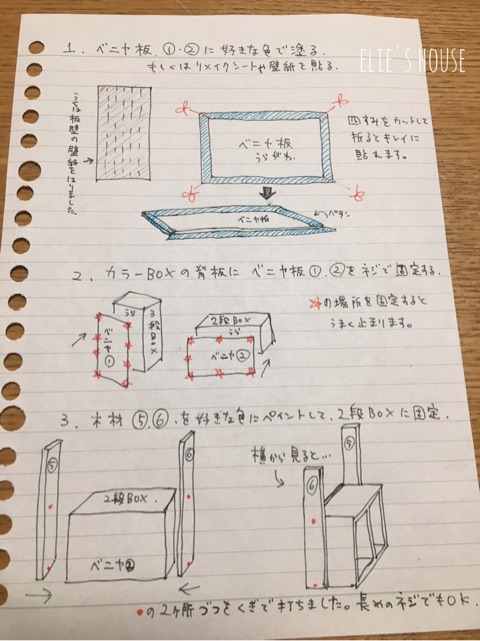 ELIE'S HOUSE
1. ベニヤ板 ①・② に好きな色で塗る.
もしくはリメイクシートや壁紙を貼る.
うちは板壁の壁紙をはりました。
ベニヤ板
うらがわ
四すみをカットして
折るとキレイに
貼れます。
ベニヤ板
パタン
2. カラーBOXの背板に ベニヤ板①.②をネジで固定する.
の場所を固定すると
うまく止まります。
うら
3段BOX
ベニヤ①
2段BOX
うら
ベニヤ②
3. 木材 ⑤.⑥.を好きな色にペイントして.2段BOXに固定.
⑤
2段BOX.
ベニヤ②
⑥
横から見ると…
⑤
⑥
の2ヶ所づつをくぎで打ちました。長めのネジでもOK.